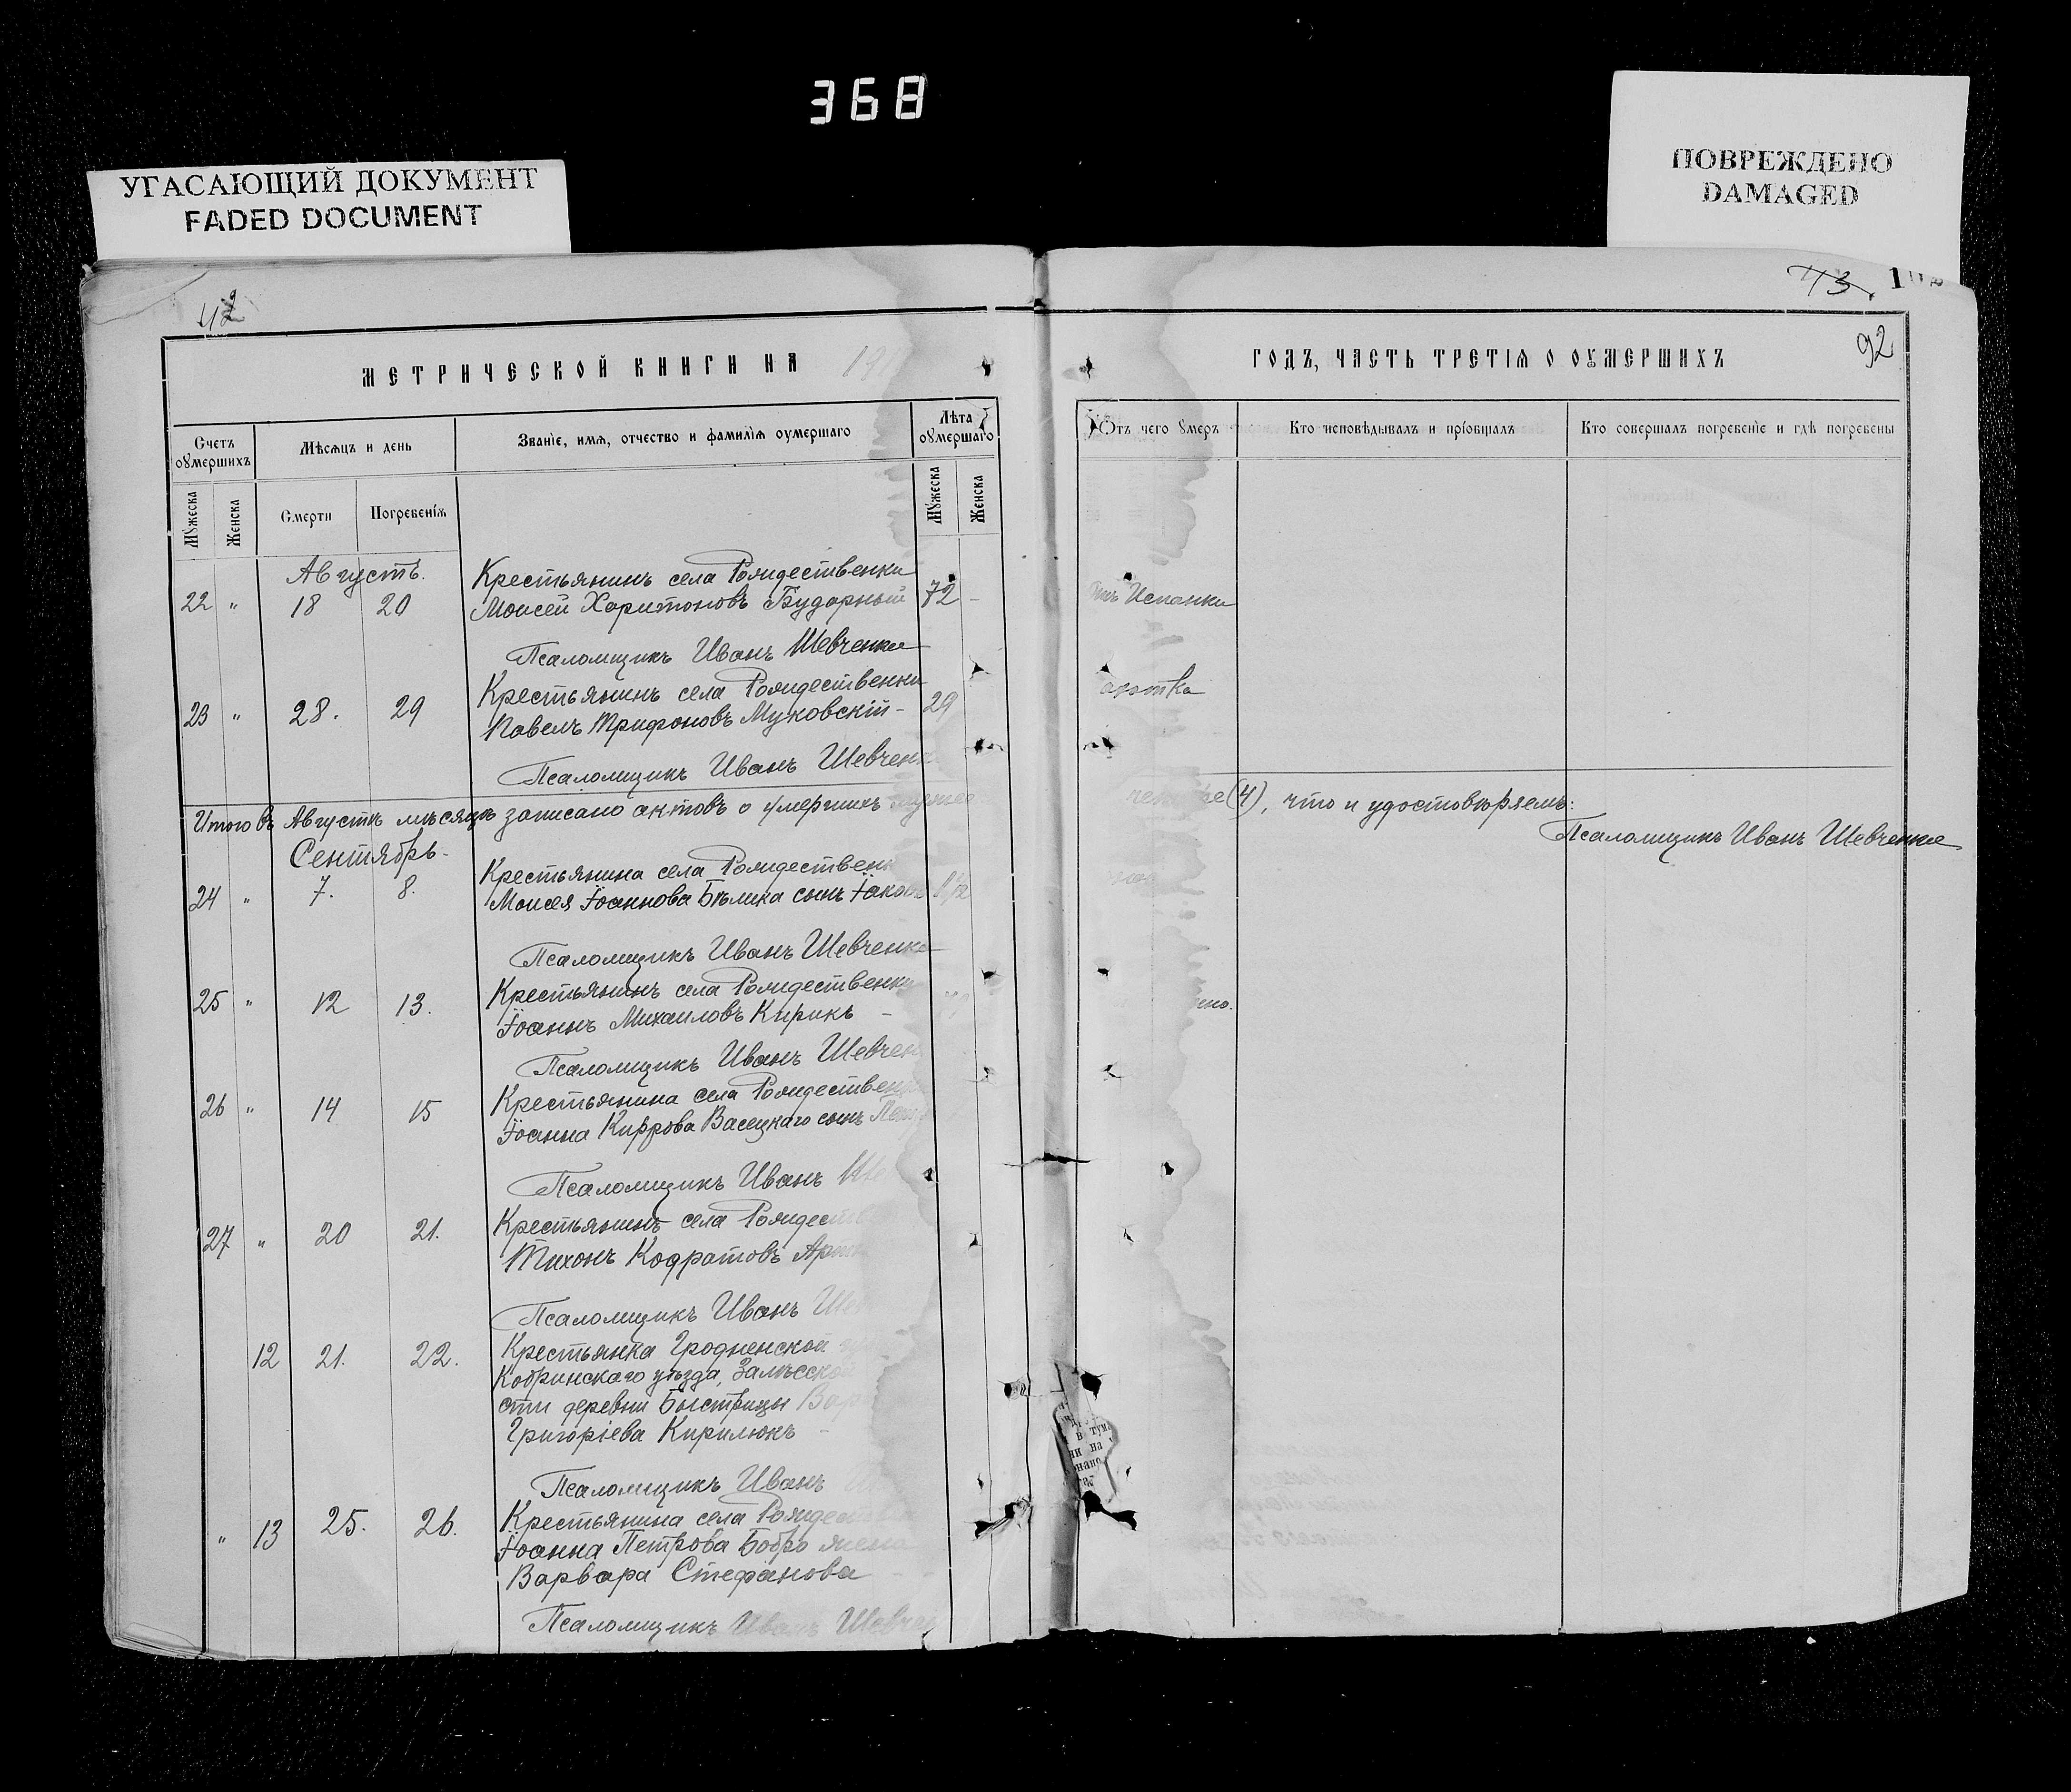 368
УГАСАЮЩИЙ ДОКУМЕНТ
FADED DOCUMENT
ПОВРЕЖДЕНО
DAMAGED
42
43.
92
МЕТРИЧЕСКОЙ КНИГИ НА 191
ГОДЪ, ЧАСТЬ ТРЕТІѦ О ОУМЕРШИХЪ
Счетъ оумершихъ
Мѣсѧцъ и день
Званіе, имѧ, отчество и фамиліѧ оумершаго
Лѣта оумершаго
Мꙋжеска
Женска
Смерти
Погребеніѧ
Мꙋжеска
Женска
Отъ чего ꙋмеръ
Кто исповѣдывалъ и пріобщалъ
Кто совершалъ погребеніе и гдѣ погребены
Августъ.
Крестьянинъ села Рождественки
22 " 18 20 Моисей Харитоновъ Бударный 72 -
Испанки
Псаломщикъ Иванъ Шевченко
Крестьянинъ села Рождественки
23 " 28. 29 Павелъ Трифоновъ Муковскій - 29
Псаломщикъ Иванъ Шевчен
Итого въ Августѣ мѣсяцѣ записано актовъ о умершихъ
(4), что и удостовѣряемъ:
Псаломщикъ Иванъ Шевченко
Сентябрь.
Крестьянина села Рождествен
24 " 7. 8. Моисея Іоаннова Бѣлика сынъ Іаковъ 1/2
Псаломщикъ Иванъ Шевченко
Крестьянинъ села Рождественки
25 " 12 13. Іоаннъ Михаиловъ Кирикъ -
Псаломщикъ Иванъ Шевчен
Крестьянина села Рождествен
26 " 14 15 Іоанна Кирова Васецкаго сынъ
Псаломщикъ Иванъ Ше
Крестьянинъ села Рождест
27 " 20 21. Тихонъ Кодратовъ
Псаломщикъ Иванъ Ше
12 21. 22. Крестьянка Гродненской
Кобринскаго уѣзда, Залѣсской
сти деревни Быстрицы Вар
Григоріева Кирилюкъ -
Псаломщикъ Иванъ
Крестьянина села Рождест
" 13 25. 26. Іоанна Петрова Бобро жена
Варвара Стефанова
Псаломщикъ Иванъ Шевчен